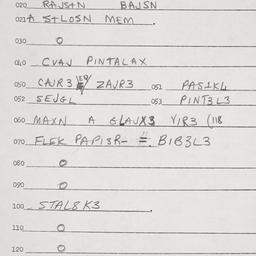 020 RAJSTN BAJSN
021A STLOSN MEM.
030 O
040 CVAJ PINTALAX
050 CAJR3 ZAJR3 051 PASIKL
052 SEJGL 053 PINT3L3
060 MAXN A GLAUX3 VIR3 (118
070 FLEK PAPI3R- = BIB3L3
080 O
090 O
100 STAL8 K3.
110 O
120 O